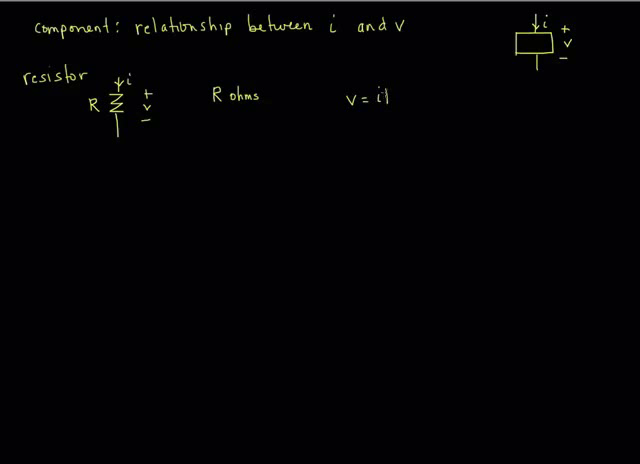 component: relationship between i and v
i
+
v
−
resistor
i
R
+
v
−
R ohms
v = i